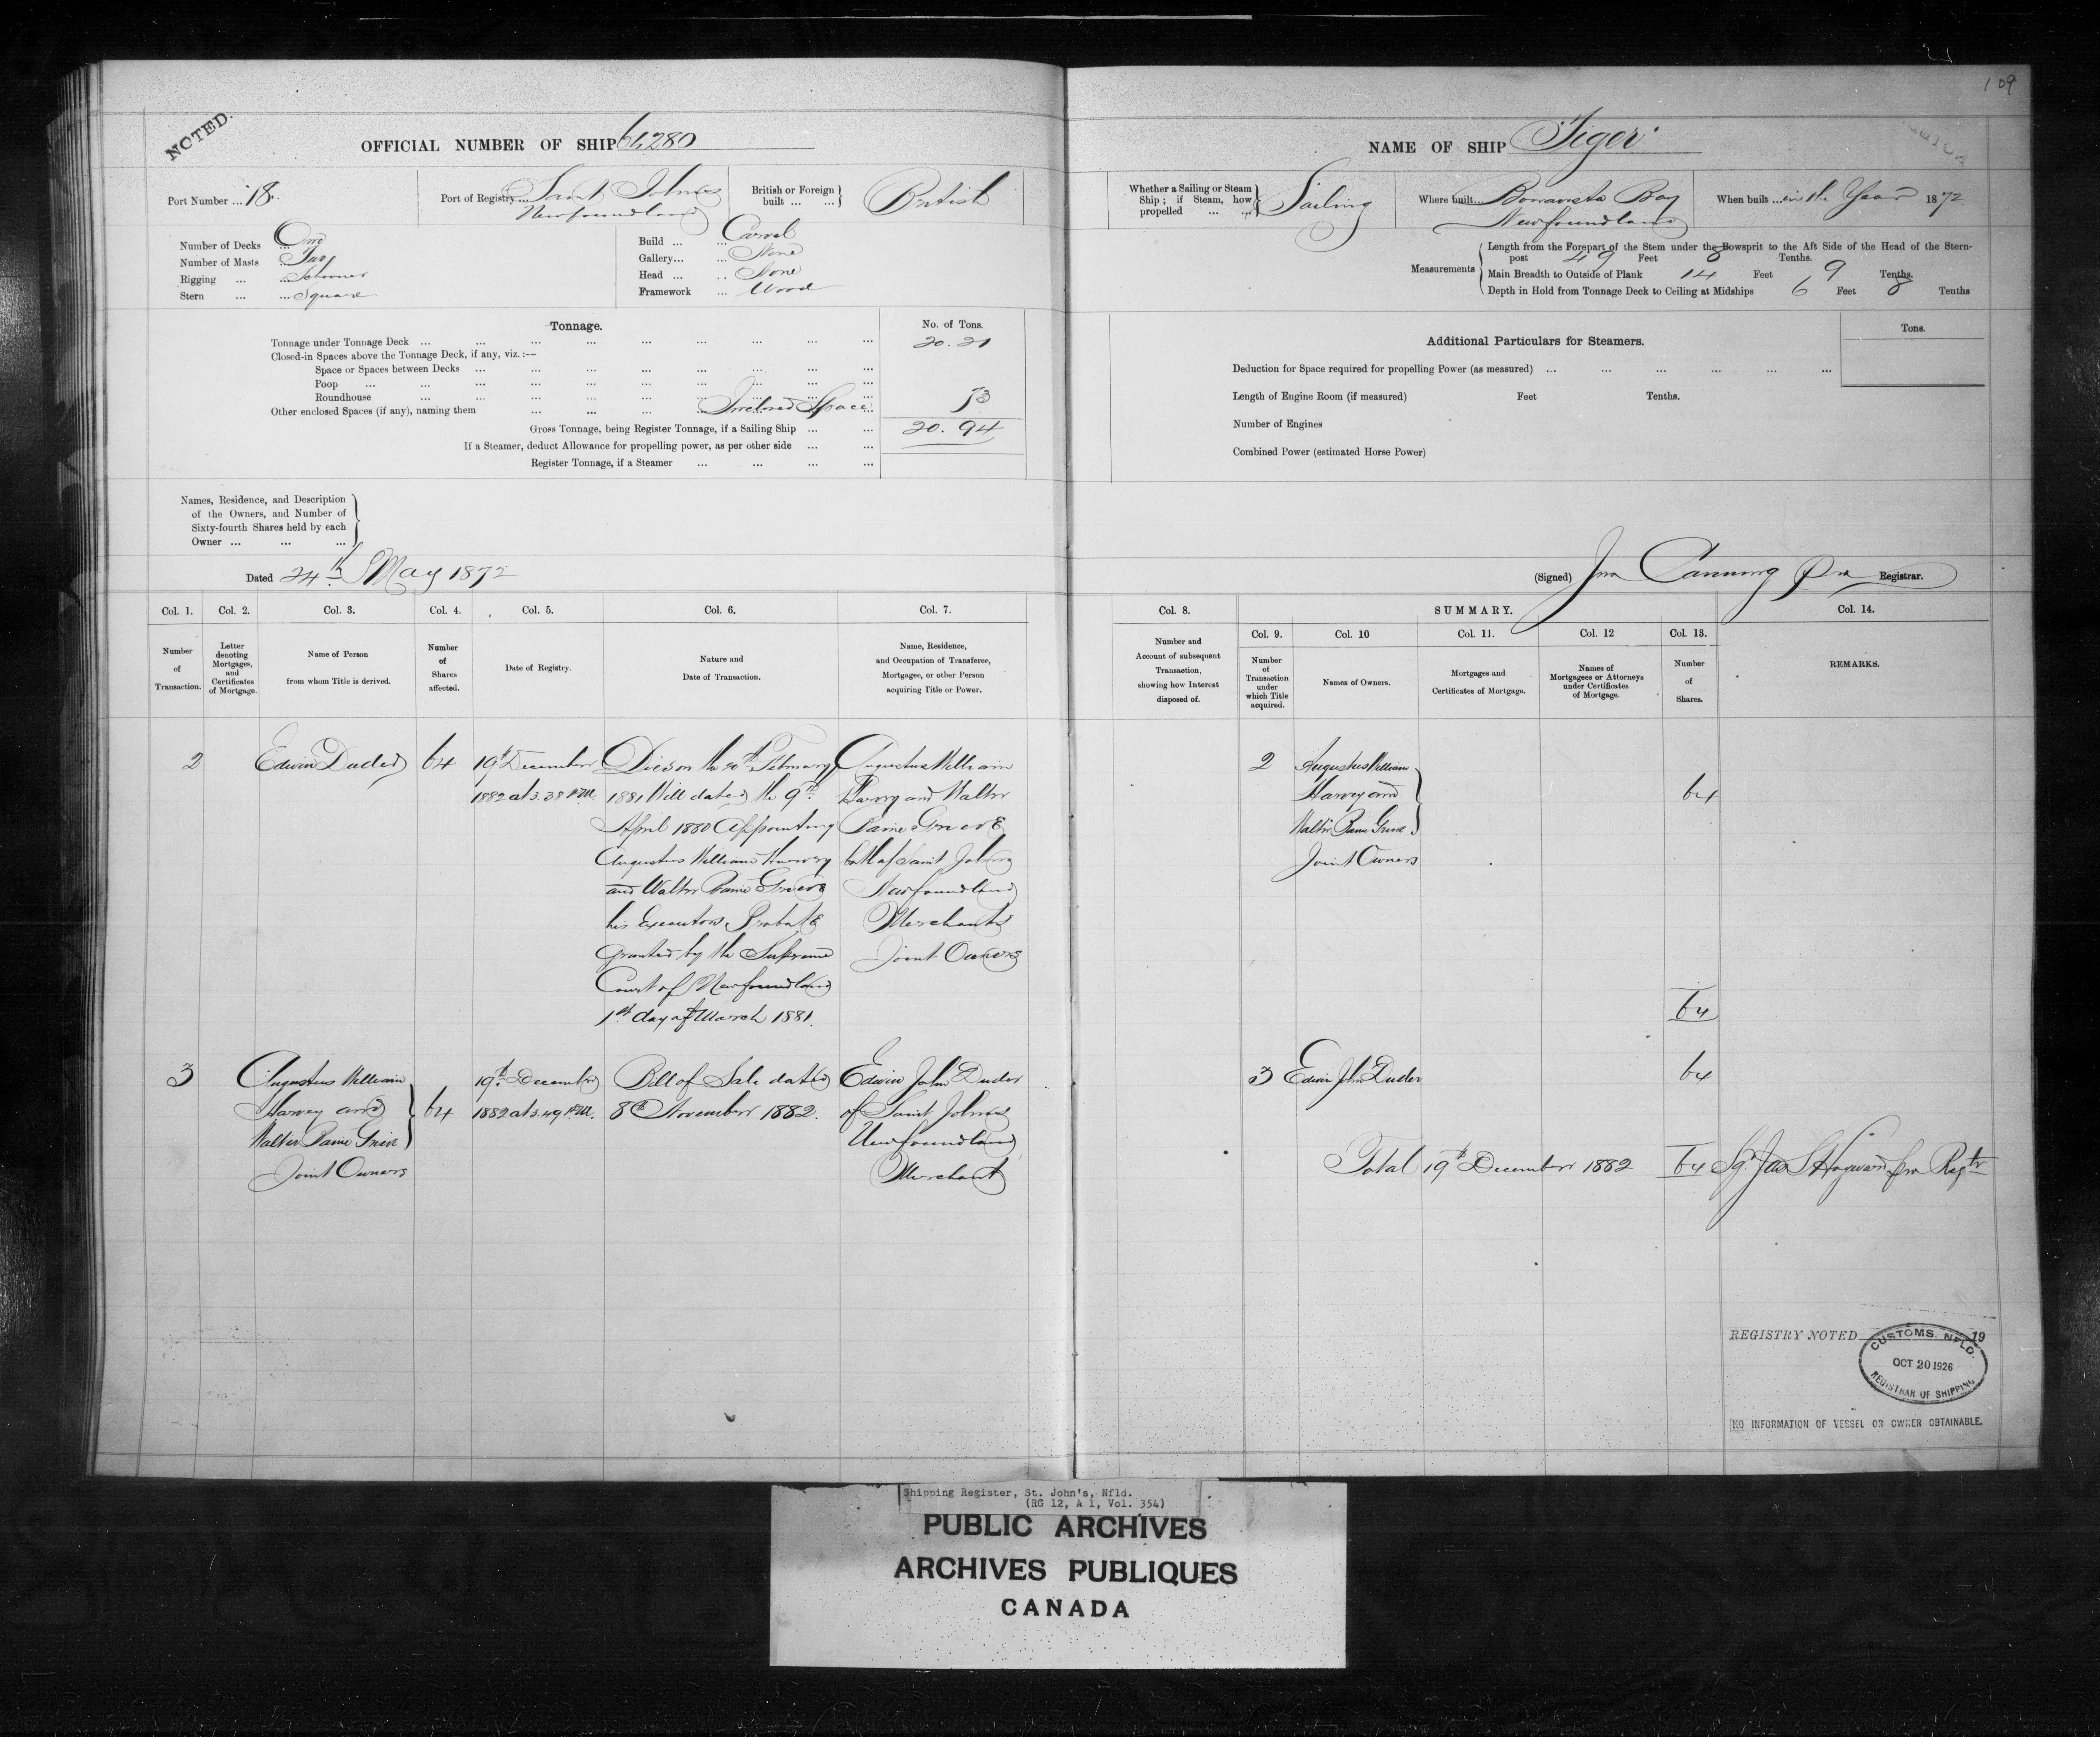 109
NOTED.
OFFICIAL NUMBER OF SHIP 64280
NAME OF SHIP Tiger
Port Number ... 18.
Port of Registry ... Saint Johns
Newfoundland
British or Foreign built ... ... British
Whether a Sailing or Steam Ship; if Steam, how propelled ... ... Sailing
Where built... Bonavista Bay
Newfoundland
When built ... in the Year 1872
Number of Decks ... One
Number of Masts ... Two
Rigging ... ... Schooner
Stern ... ... Square
Build ... ... Carvel
Gallery... ... None
Head ... ... None
Framework ... Wood
Measurements
Length from the Forepart of the Stem under the Bowsprit to the Aft Side of the Head of the Stern-
post 49 Feet 8 Tenths.
Main Breadth to Outside of Plank 14 Feet 9 Tenths.
Depth in Hold from Tonnage Deck to Ceiling at Midships 6 Feet 8 Tenths
Tonnage.
No. of Tons.
Tonnage under Tonnage Deck ... 20.21
Closed-in Spaces above the Tonnage Deck, if any, viz.:--
Space or Spaces between Decks ...
Poop ...
Roundhouse ...
Other enclosed Spaces (if any), naming them ... Inclosed Space ... 53
Gross Tonnage, being Register Tonnage, if a Sailing Ship ... 20.94
If a Steamer, deduct Allowance for propelling power, as per other side ...
Register Tonnage, if a Steamer ...
Additional Particulars for Steamers.
Tons.
Deduction for Space required for propelling Power (as measured) ...
Length of Engine Room (if measured) Feet Tenths.
Number of Engines
Combined Power (estimated Horse Power)
Names, Residence, and Description
of the Owners, and Number of
Sixty-fourth Shares held by each
Owner ... ... ...
Dated 24th May 1872
(Signed) Jno Canning Pro Registrar.
Col. 1. Col. 2. Col. 3. Col. 4. Col. 5. Col. 6. Col. 7.
Number of Transaction.
Letter denoting Mortgages, and Certificates of Mortgage.
Name of Person from whom Title is derived.
Number of Shares affected.
Date of Registry.
Nature and Date of Transaction.
Name, Residence, and Occupation of Transferee, Mortgagee, or other Person acquiring Title or Power.
Col. 8. SUMMARY. Col. 14.
Col. 9. Col. 10 Col. 11. Col. 12 Col. 13.
Number and Account of subsequent Transaction, showing how Interest disposed of.
Number of Transaction under which Title acquired.
Names of Owners.
Mortgages and Certificates of Mortgage.
Names of Mortgagees or Attorneys under Certificates of Mortgage.
Number of Shares.
REMARKS.
2
Edwin Duder
64
19th December
1882 at 3.38 P.M.
Died on the 20th February
1881 Will dated the 9th
April 1880 Appointing
Augustus William Harvey
and Walter Baine Grieve
his Executors. Probate
granted by the Supreme
Court of Newfoundland
1st day of March 1881.
Augustus William
Harvey and Walter
Baine Grieve
both of Saint Johns
Newfoundland
Merchants
Joint Owners
2
Augustus William
Harvey and
Walter Baine Grieve
Joint Owners
64
64
3
Augustus William
Harvey and
Walter Baine Grieve
Joint Owners
64
19th December
1882 at 3.49 P.M.
Bill of Sale dated
8th November 1882.
Edwin John Duder
of Saint Johns
Newfoundland
Merchant
3
Edwin John Duder
64
Total 19th December 1882 64 Sgd Jas S Hayward pro Regtr
REGISTRY NOTED 19
CUSTOMS. NFLD.
OCT 20 1926
REGISTRAR OF SHIPPING
NO INFORMATION OF VESSEL OR OWNER OBTAINABLE.
Shipping Register, St. John's, Nfld.
(RG 12, A 1, Vol. 354)
PUBLIC ARCHIVES
ARCHIVES PUBLIQUES
CANADA